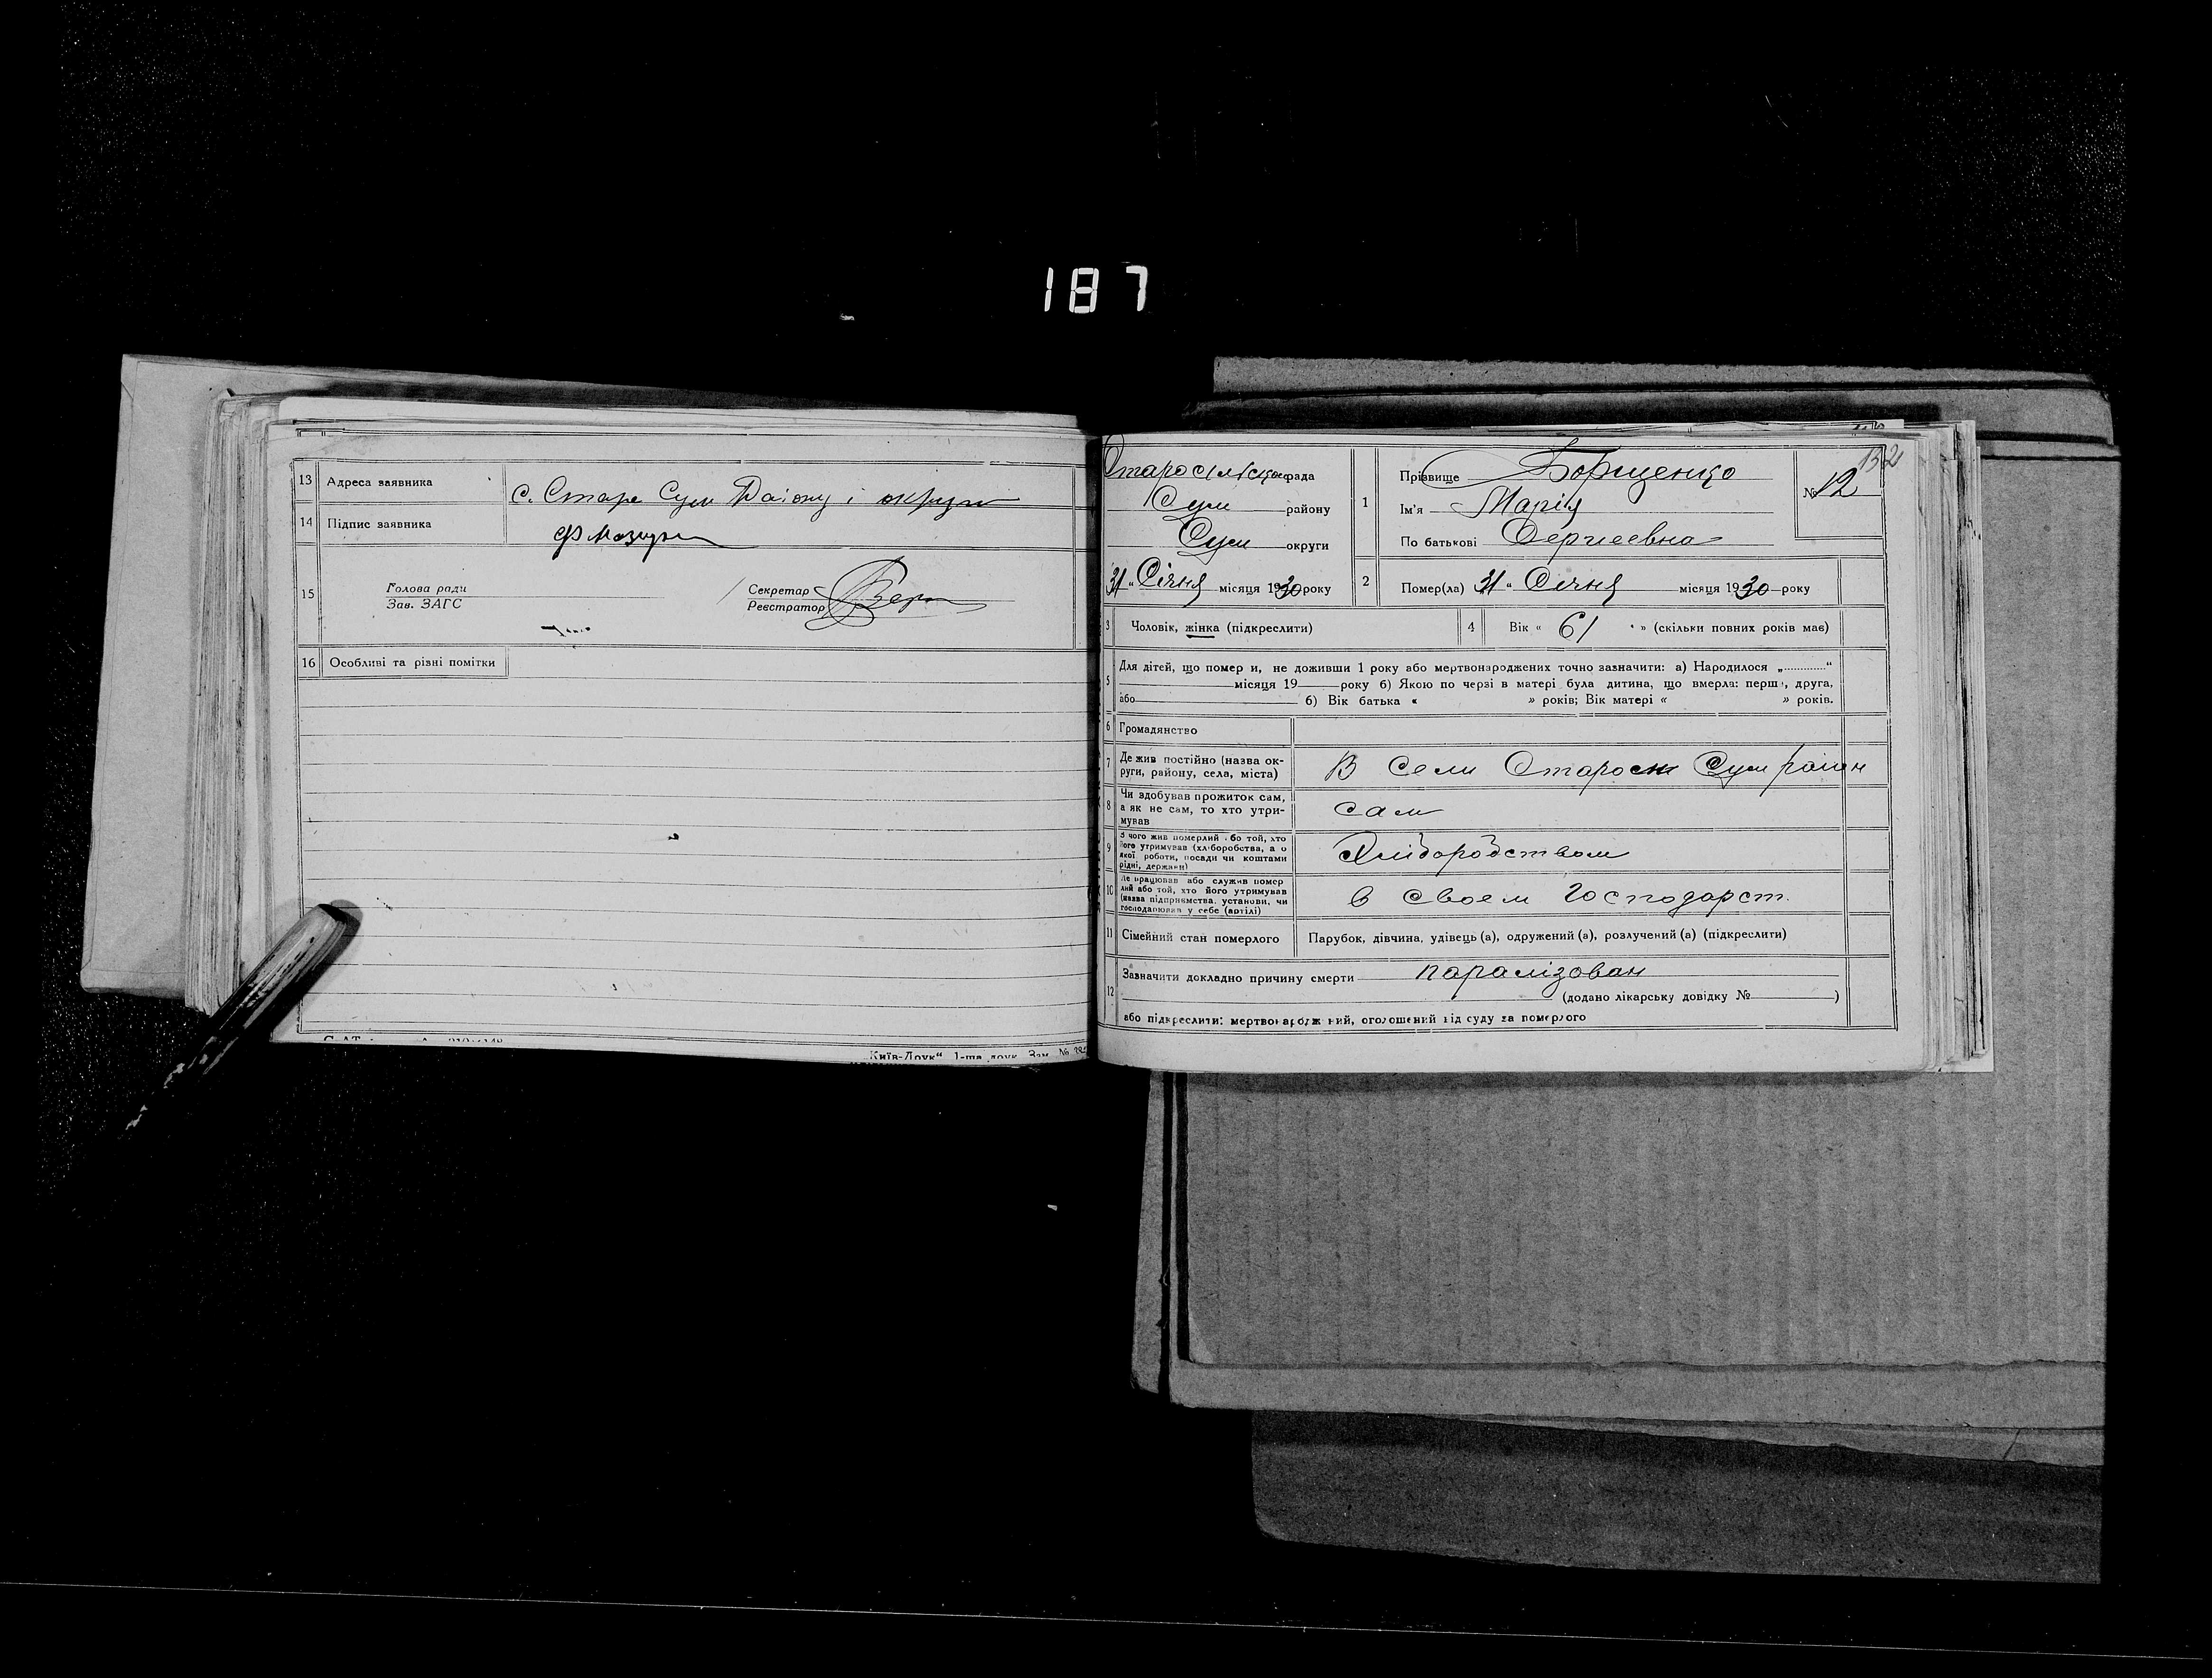 187
13 Адреса заявника с. Старе Сум Району і округи
14 Підпис заявника
15 Голова ради
Зав. ЗАГС
Секретар
Реєстратор
16 Особливі та різні помітки
Київ-Друк" 1-ша друк. Зам. №
рада
Сум району
Сум округи
31 " Січня місяця 1930 року
1 Прізвище Борщенко
Ім'я Марія
По батькові Сергеевна
№ 12
132
2 Помер(ла) 31 " Січня місяця 1930 року
3 Чоловік, жінка (підкреслити)
4 Вік « 61 » (скільки повних років має)
5 Для дітей, що померли, не доживши 1 року або мертвонароджених точно зазначити: а) Народилося „............“
місяця 19 року б) Якою по черзі в матері була дитина, що вмерла: перша, друга,
або б) Вік батька « » років; Вік матері « » років.
6 Громадянство
7 Де жив постійно (назва ок-
руги, району, села, міста)
В Сели Сум район
8 Чи здобував прожиток сам,
а як не сам, то хто утри-
мував
сам
9 З чого жив померлий або той, хто
його утримував (хліборобства, а о
якої роботи, посади чи коштами
рідні, держави)
Хліборобством
10 Де працював або служив помер
лий або той, хто його утримував
(назва підприємства, установи, чи
господарював у себе (артілі)
в своем Господарст.
11 Сімейний стан померлого Парубок, дівчина, удівець (а), одружений (а), розлучений (а) (підкреслити)
12 Зазначити докладно причину смерти паралізован
(додано лікарську довідку № )
або підкреслити: мертвонароджений, оголошений від суду за померлого